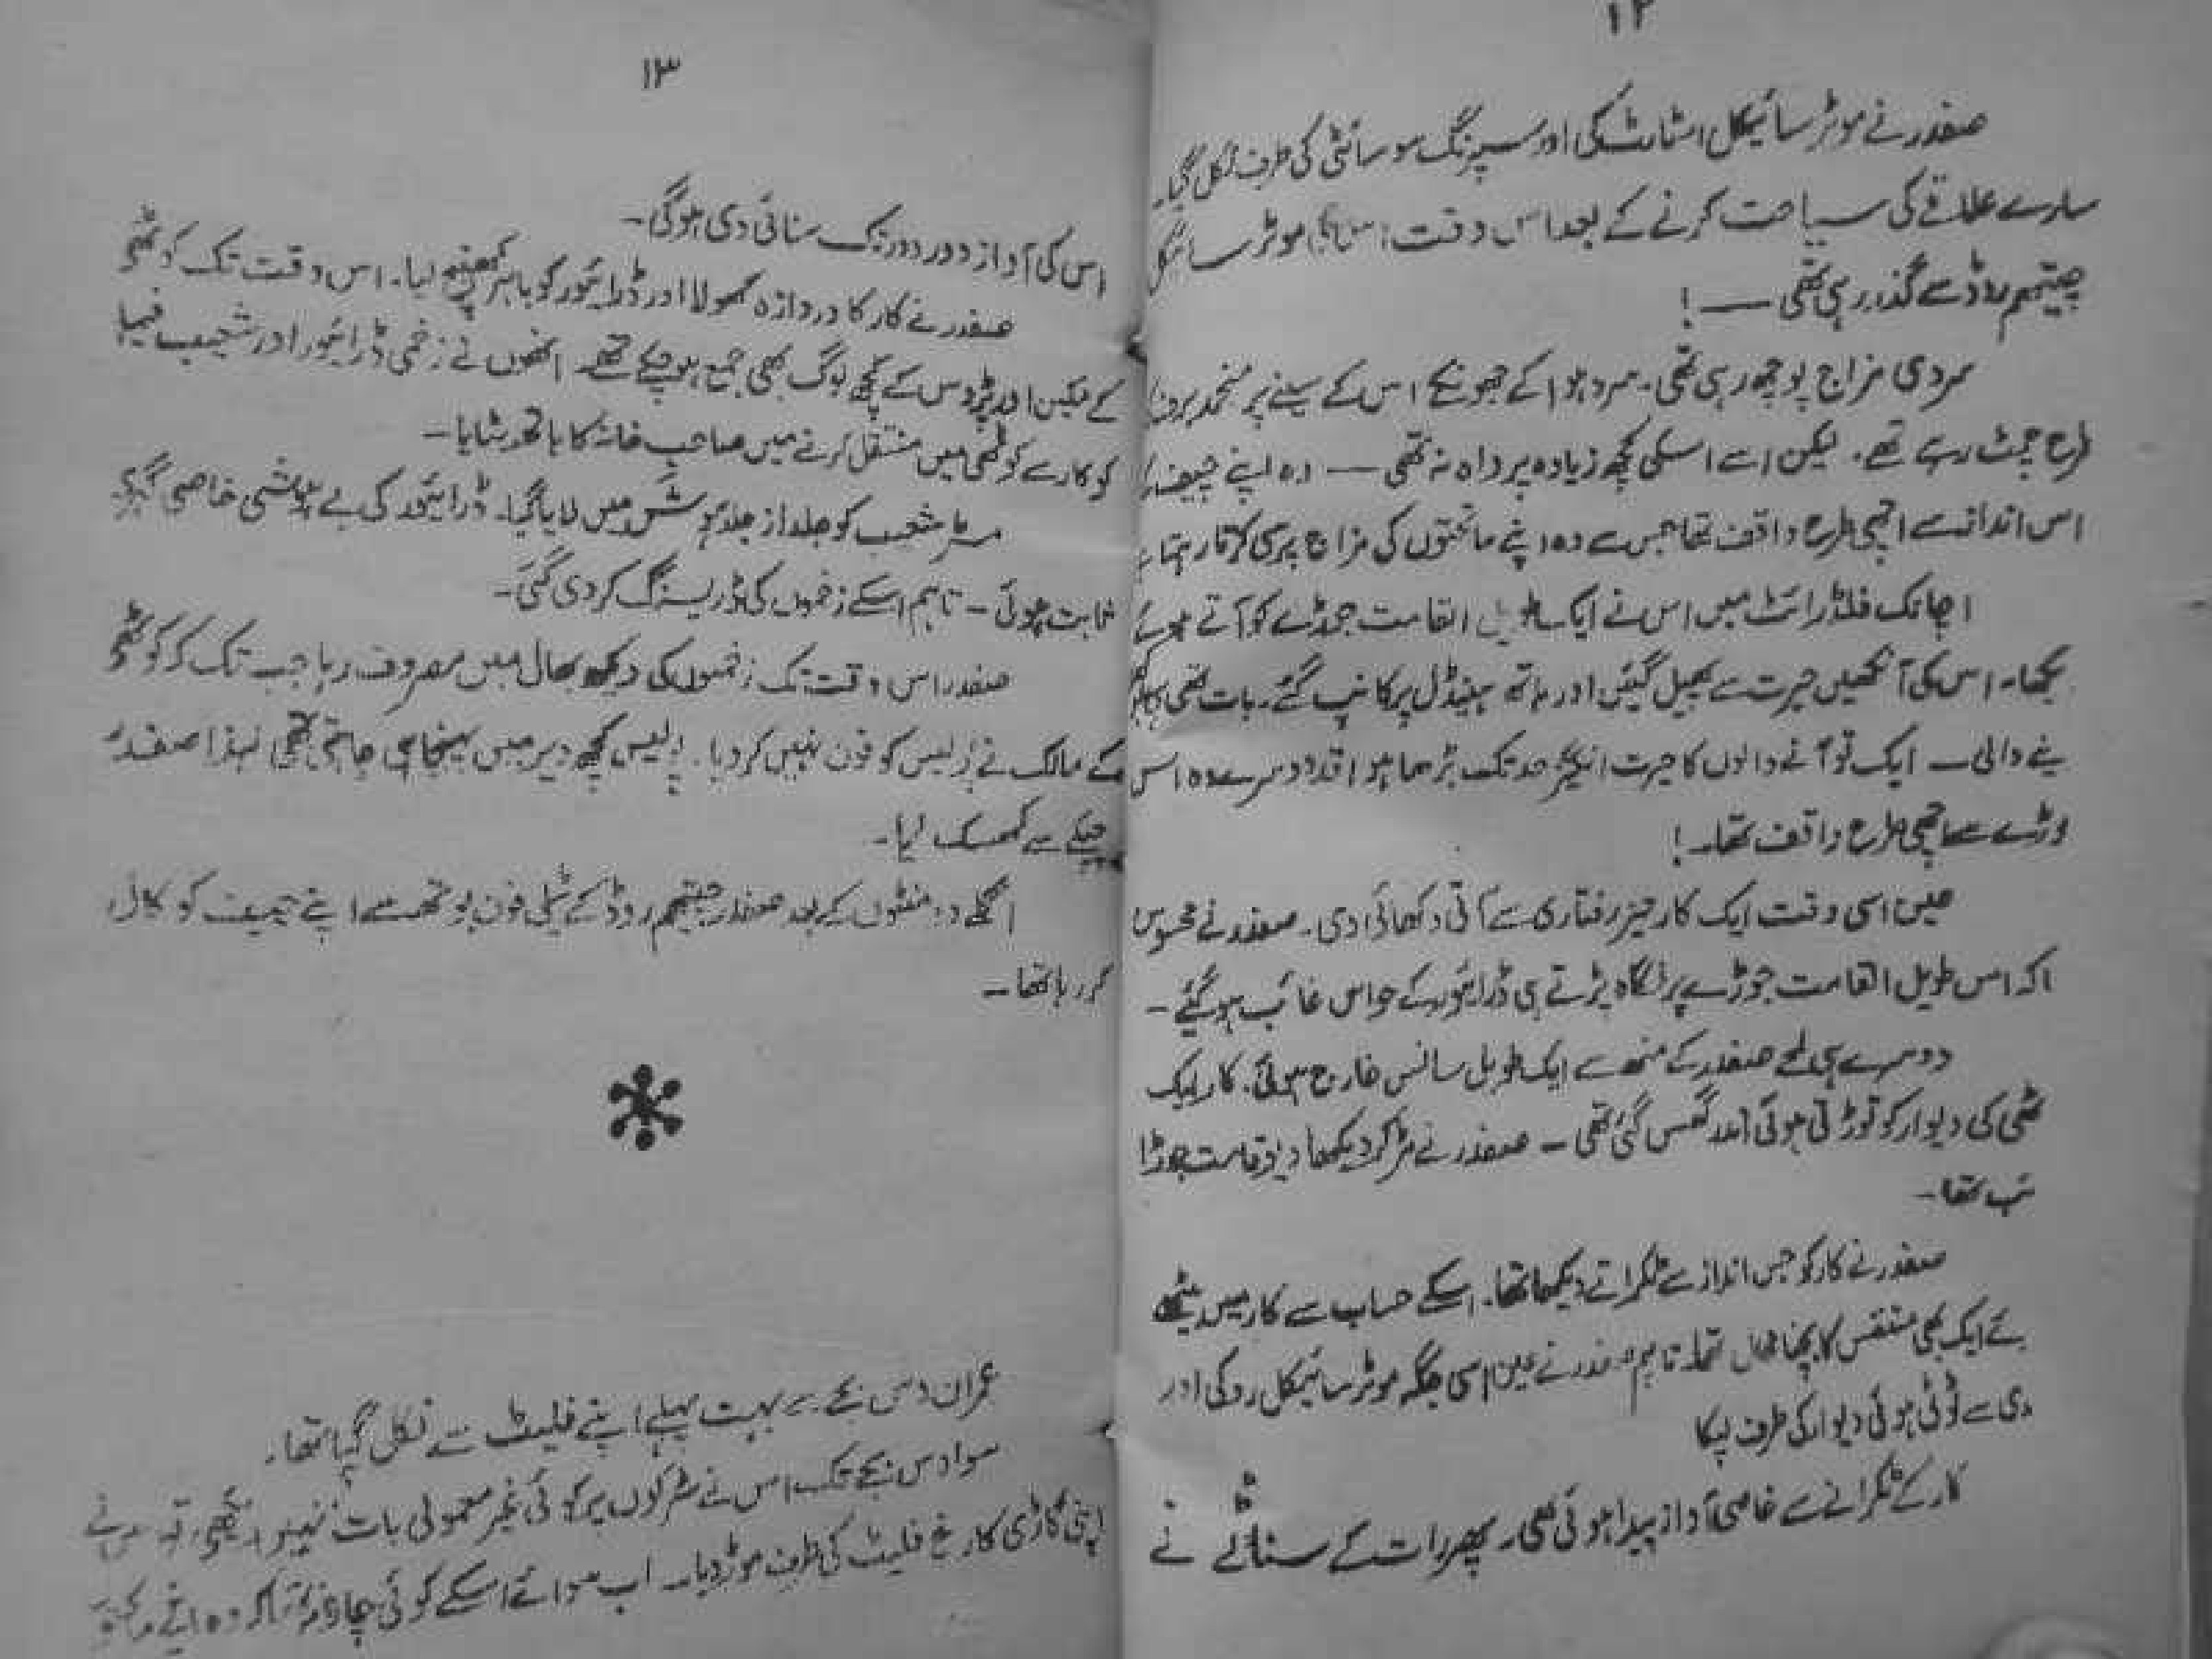 ۱۲
صفدر نے موٹر سائیکل اسٹارٹ کی اور سپرنگ سوسائٹی کی طرف نکل گیا۔
سارے علاقے کی سیاحت کرنے کے بعد اس وقت اس کی موٹر سائیکل
چیتھم روڈ سے گذر رہی تھی ــــ !
سردی مزاج پوچھ رہی تھی۔ سرد ہوا کے جھونکے اس کے سینے پر منجمد برف
طرح چمٹ رہے تھے۔ لیکن اسے اسکی کچھ زیادہ پرواہ نہ تھی ــــ وہ اپنے چیف
اس انداز سے اچھی طرح واقف تھا جس سے وہ اپنے ماتحتوں کی مزاج پرسی کرتا رہتا
اچانک فلڈ لائٹ میں اس نے ایک طویل القامت جوڑے کو آتے ہوئے
یکھا۔ اس کی آنکھیں حیرت سے پھیل گئیں اور ہاتھ ہینڈل پر کانپ گئے۔ بات تھی
ینے والی ۔ ایک تو آنے والوں کا حیرت انگیز حد تک بڑھا ہوا قد دوسرے وہ اس
وڑے سے اچھی طرح واقف تھا۔ !
عین اسی وقت ایک کار تیز رفتاری سے آتی دکھائی دی۔ صفدر نے محسوس
اکہ اس طویل القامت جوڑے پر نگاہ پڑتے ہی ڈرائیور کے حواس غائب ہو گئے۔
دوسرے ہی لمحے صفدر کے منھ سے ایک طویل سانس خارج ہوئی۔ کار ایک
ٹھی کی دیوار کو توڑتی ہوئی اندر گھس گئی تھی ۔ صفدر نے مڑ کر دیکھا دیو قامت جوڑا
ئب تھا۔
صفدر نے کار کو جس انداز سے ٹکراتے دیکھا تھا۔ اسکے حساب سے کار میں بیٹھے
ئے ایک بھی متنفس کا بچنا محال تھا۔ تاہم صفدر نے عین اسی جگہ موٹر سائیکل روکی اور
دی سے ٹوٹی ہوئی دیوار کی طرف لپکا
کار کے ٹکرانے سے خاصی آواز پیدا ہوئی تھی۔ پھر رات کے سناٹے نے
۱۳
اس کی آواز دور دور تک سنائی دی ہوگی۔
صفدر نے کار کا دروازہ کھولا اور ڈرائیور کو باہر کھینچ لیا۔ اس وقت تک کوٹھی
کے مکین اور پڑوس کے کچھ لوگ بھی جمع ہو چکے تھے۔ انھوں نے زخمی ڈرائیور اور شعیب
کو کار سے کوٹھی میں منتقل کرنے میں صاحب خانہ کا ہاتھ بٹایا۔
مسٹر شعیب کو جلد از جلد ہوش میں لایا گیا۔ ڈرائیور کی بے ہوشی خاصی گہری
ثابت ہوئی ۔ تاہم اسکے زخموں کی ڈریسنگ کر دی گئی۔
صفدر اس وقت تک زخمیوں کی دیکھ بھال میں مصروف رہا جب تک کہ کوٹھی
کے مالک نے پولیس کو فون نہیں کر دیا۔ پولیس کچھ دیر میں پہنچا ہی چاہتی تھی لہٰذا صفدر
چپکے سے کھسک لیا۔
اگلے دو منٹوں کے بعد صفدر چیتھم روڈ کے ٹیلی فون بوتھ سے اپنے چیف کو کال
کر رہا تھا۔
عمران دس بجے سے بہت پہلے اپنے فلیٹ سے نکل گیا تھا۔
سوا دس بجے تک اس نے سڑکوں پر کوئی غیر معمولی بات نہیں دیکھی تو اس نے
اپنی گاڑی کا رخ فلیٹ کی طرف موڑ دیا۔ اب سوائے اسکے کوئی چارہ نہ تھا کہ وہ اپنے